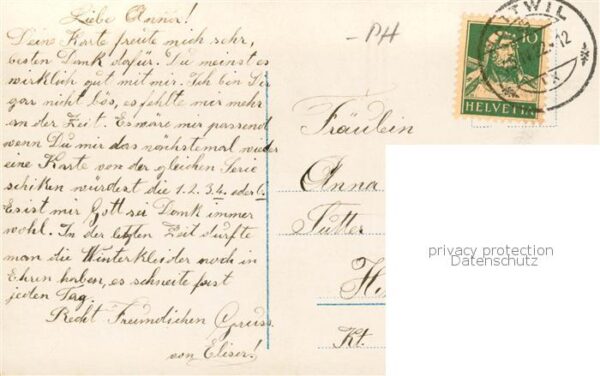 Liebe Anna!
Deine Karte freute mich sehr,
besten Dank dafür. Du meinst es
wirklich gut mit mir. Ich bin Dir
gar nicht bös, es fehlte mir mehr
an der Zeit. Es wäre mir passend
wenn Du mir das nächstemal wieder
eine Karte von der gleichen Serie
schiken würdest die 1. 2. 3. 4. oder 6.
Es ist mir Gott sei Dank immer
wohl. In der letzten Zeit durfte
man die Winterkleider noch in
Ehren haben, es schneite fast
jeden Tag.
Recht Freundlichen Gruss
von Eliser!
-PH
TWIL
10
HELVETIA
Fräulein
Anna
Tutter
H.
Kt.
privacy protection
Datenschutz